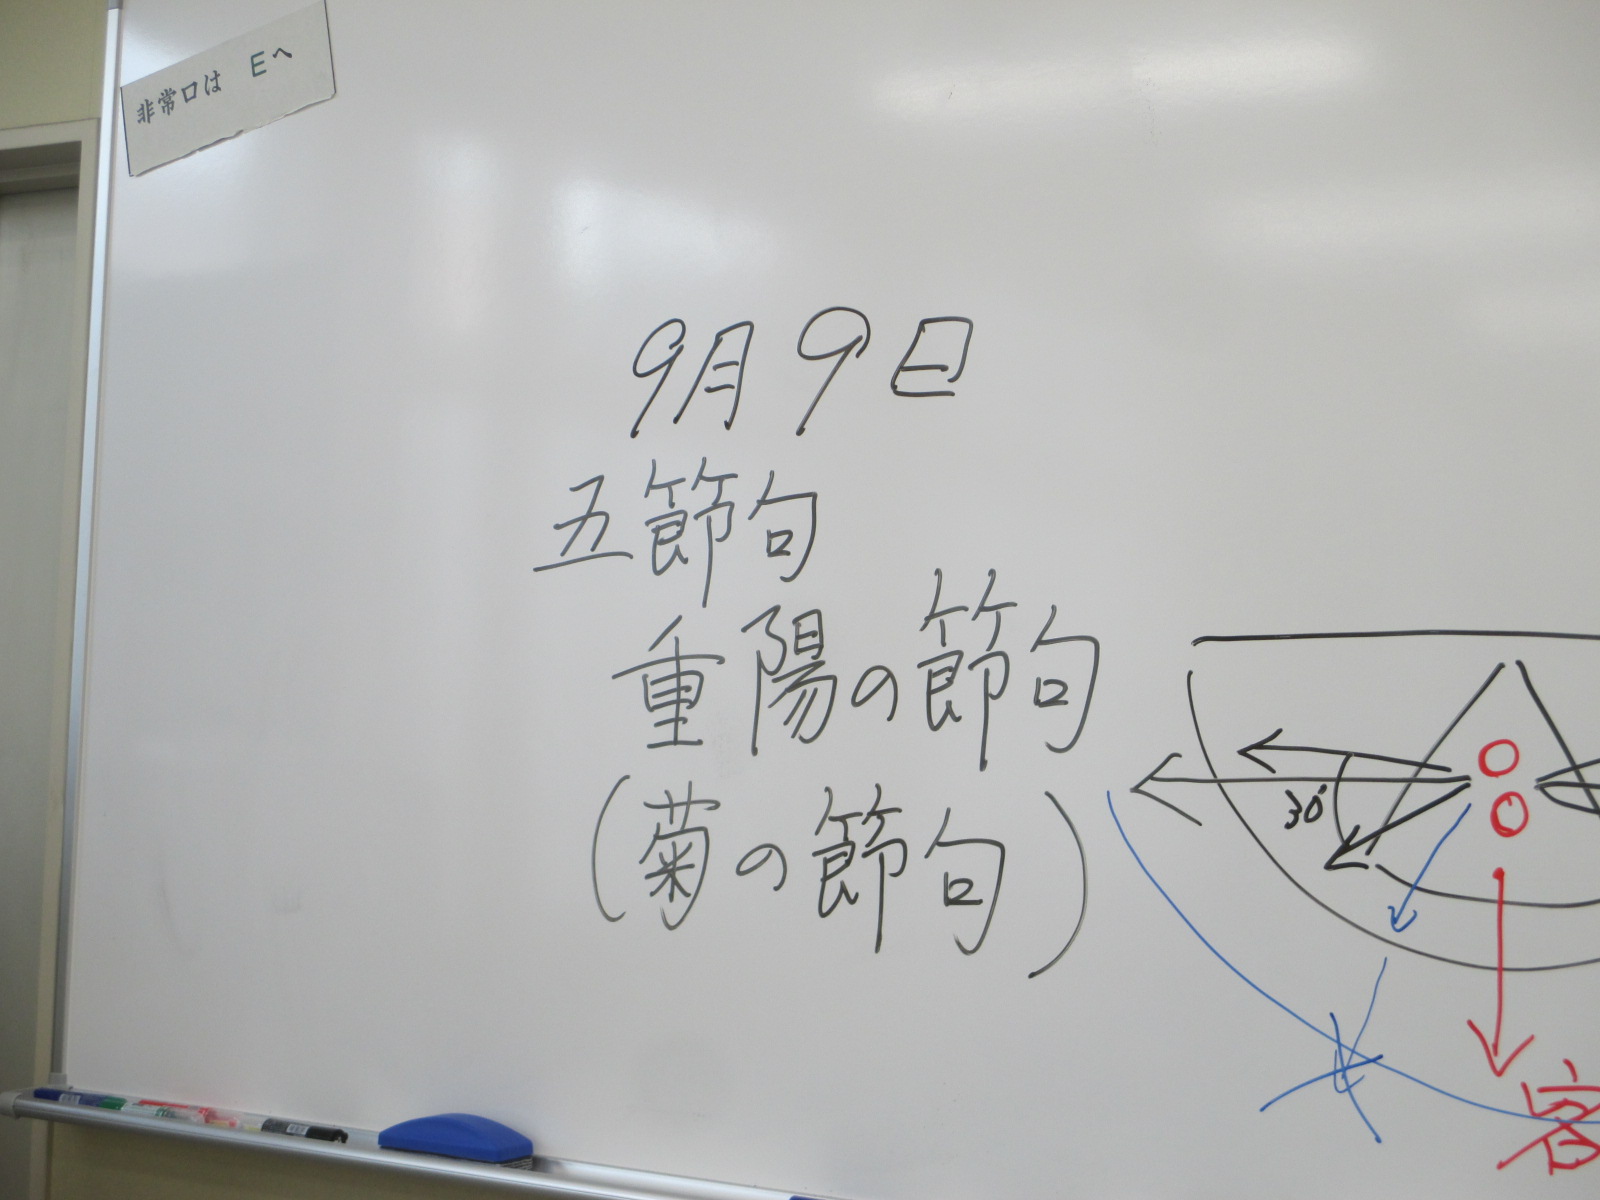 非常口は Eへ
9月9日
五節句
重陽の節句
(菊の節句)
30°
客